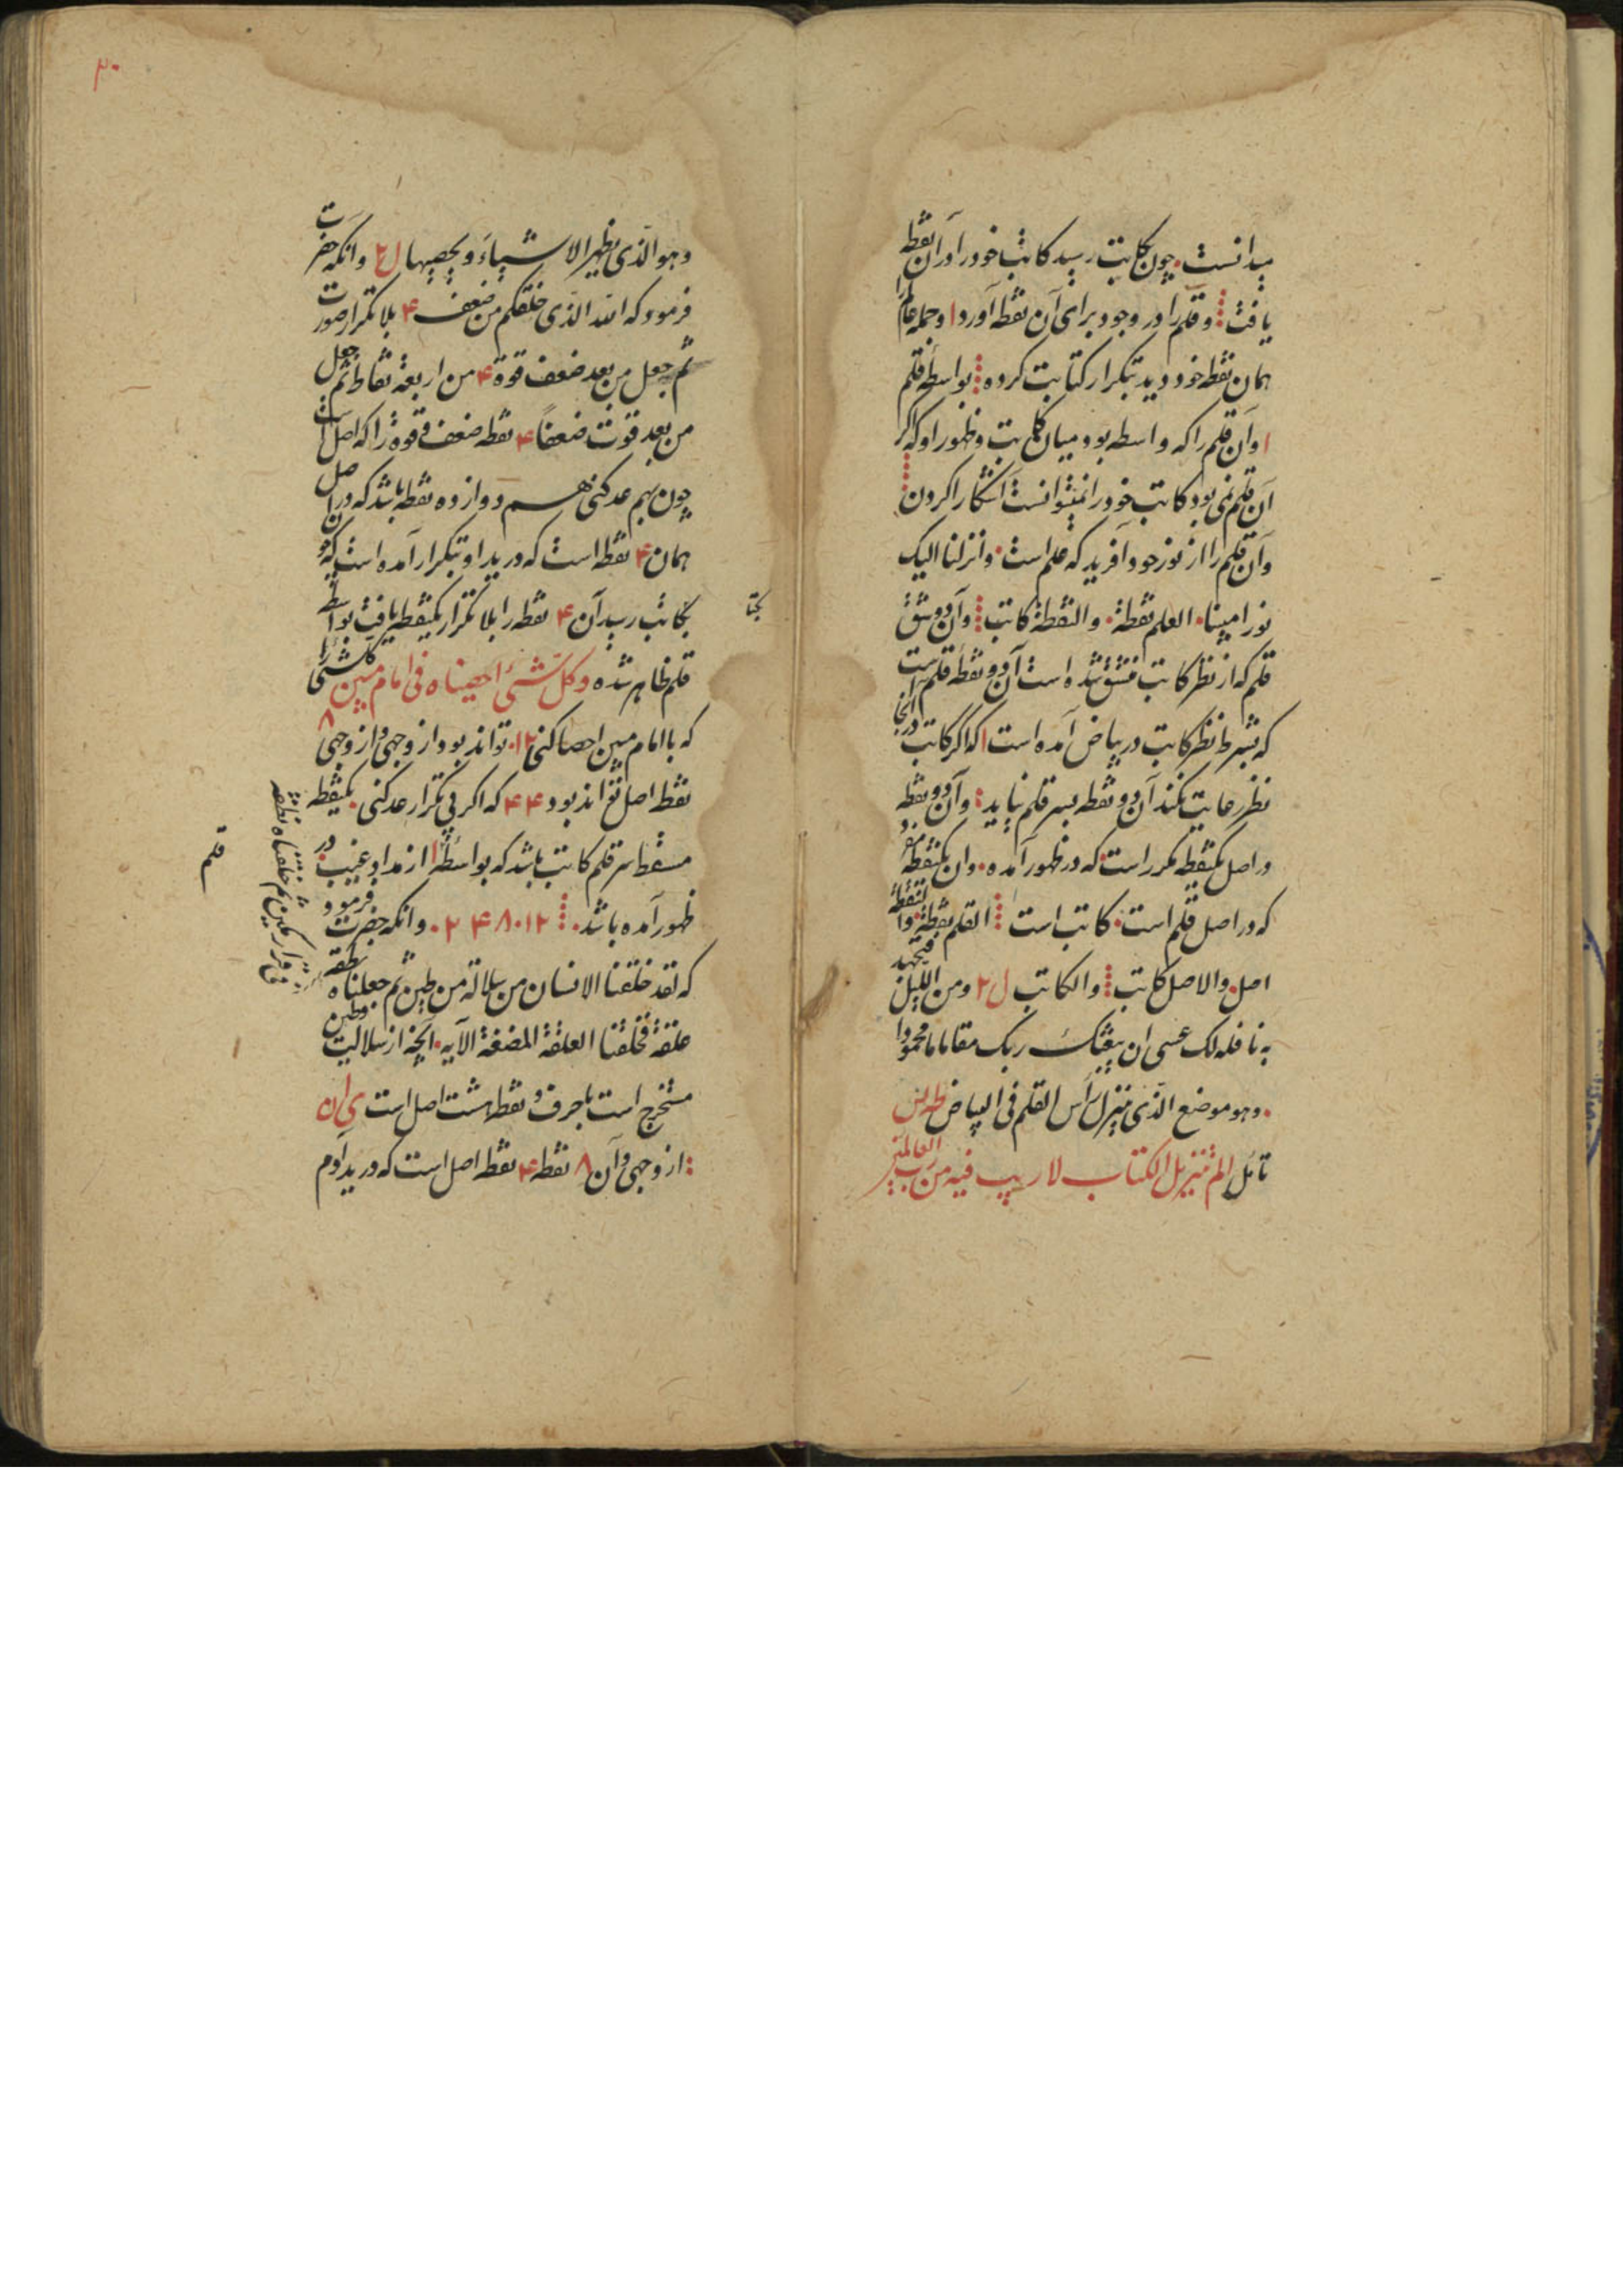 میدانست. چون بکاتب رسید کاتب خود را در آن نقطه
یافت ⁞ و قلم را در وجود برای آن نقطه آورد ا و جمله عالم را
همان نقطه خود دید بتکرار کتابت کرده ⁞ بواسطه قلم
ا و آن قلم را که واسطه بود میان کاتب و ظهور او که اگر
آن قلم نمی بود کاتب خود را نمیتوانست آشکارا کردن ⁞
و آن قلم را از نور خود آفرید که علم است. و انزلنا الیک
نورا مبینا. العلم نقطة. والنقطة کاتب ⁞ و آن دو شق
قلم که از نظر کاتب منشق شده است آن دو نقطه قلم است
که بشرط نظر کاتب در بیاض آمده است ا که اگر کاتب در آنجا
نظر رعایت نکند آن دو نقطه بسر قلم نیاید ⁞ و آن دو نقطه
در اصل یکنقطه مکرر است که در ظهور آمده. و آن یکنقطه مفرد
که در اصل قلم است. کاتب است ⁞ القلم نقطة. والنقطة
اصل. والاصل کاتب ⁞ والکاتب ل ۲ ومن اللیل فتهجد
به نافله لک عسی ان یبعثک ربک مقاما محمودا
. وهو موضع الذی ینزل رأس القلم فی البیاض
تأمل الم تنزیل الکتاب لا ریب فیه من رب العالمین
۳۰
وهو الذی یظهر الاشیاء ویحصیها ل ۲ و آنکه حضرت
فرمود که الله الذی خلقکم من ضعف ۴ بلا تکرار صورت
ثم جعل من بعد ضعف قوة ۴ من اربعة نقاط ثم جعل
من بعد قوت ضعفا ۴ نقطه ضعف و قوة را که اصل است
چون بهم عد کنی هم دوازده نقطه باشد که در اصل
همان ۴ نقطه است که در ید او بتکرار آمده است که چون
بکاتب رسد آن ۴ نقطه را بلا تکرار یکنقطه یافت بواسطه
بکتا
قلم ظاهر شده و کل شئ احصیناه فی امام مبین کلشئ را
که با امام مبین احصا کنی ۱۲. تواند بود از وجهی و از وجهی ۸
نقطه اصل تواند بود ۴ ۴ که اگر بی تکرار عد کنی. یکنقطه
مسقط سر قلم کاتب باشد که بواسطه ا از مداد غیب در
ظهور آمده باشد. ⁞ ۱۲.۸ ۴ ۲. و آنکه حضرت فرمود
که لقد خلقنا الانسان من سلالة من طین ثم جعلناه نطفة
علقة فخلقنا العلقة المضغة الآیه. آنچه از سلالیت و طین
مستخرج است با حرف و نقطه هشت اصل است ی ا ن
: از وجهی و آن ۸ نقطه ۴ نقطه اصل است که در ید آدم
فی قرار مکین ثم خلقنا النطفة
قلم